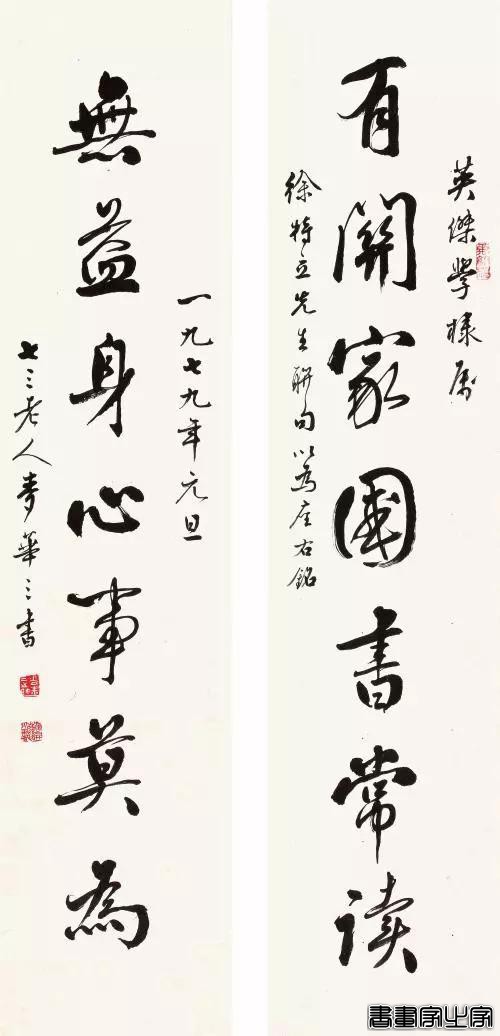 英傑學棣屬
有關家國書常讀
徐特立先生聯句以為座右銘
一九七九年元旦
無益身心事莫為
七三老人麥華三書
書畫家之家